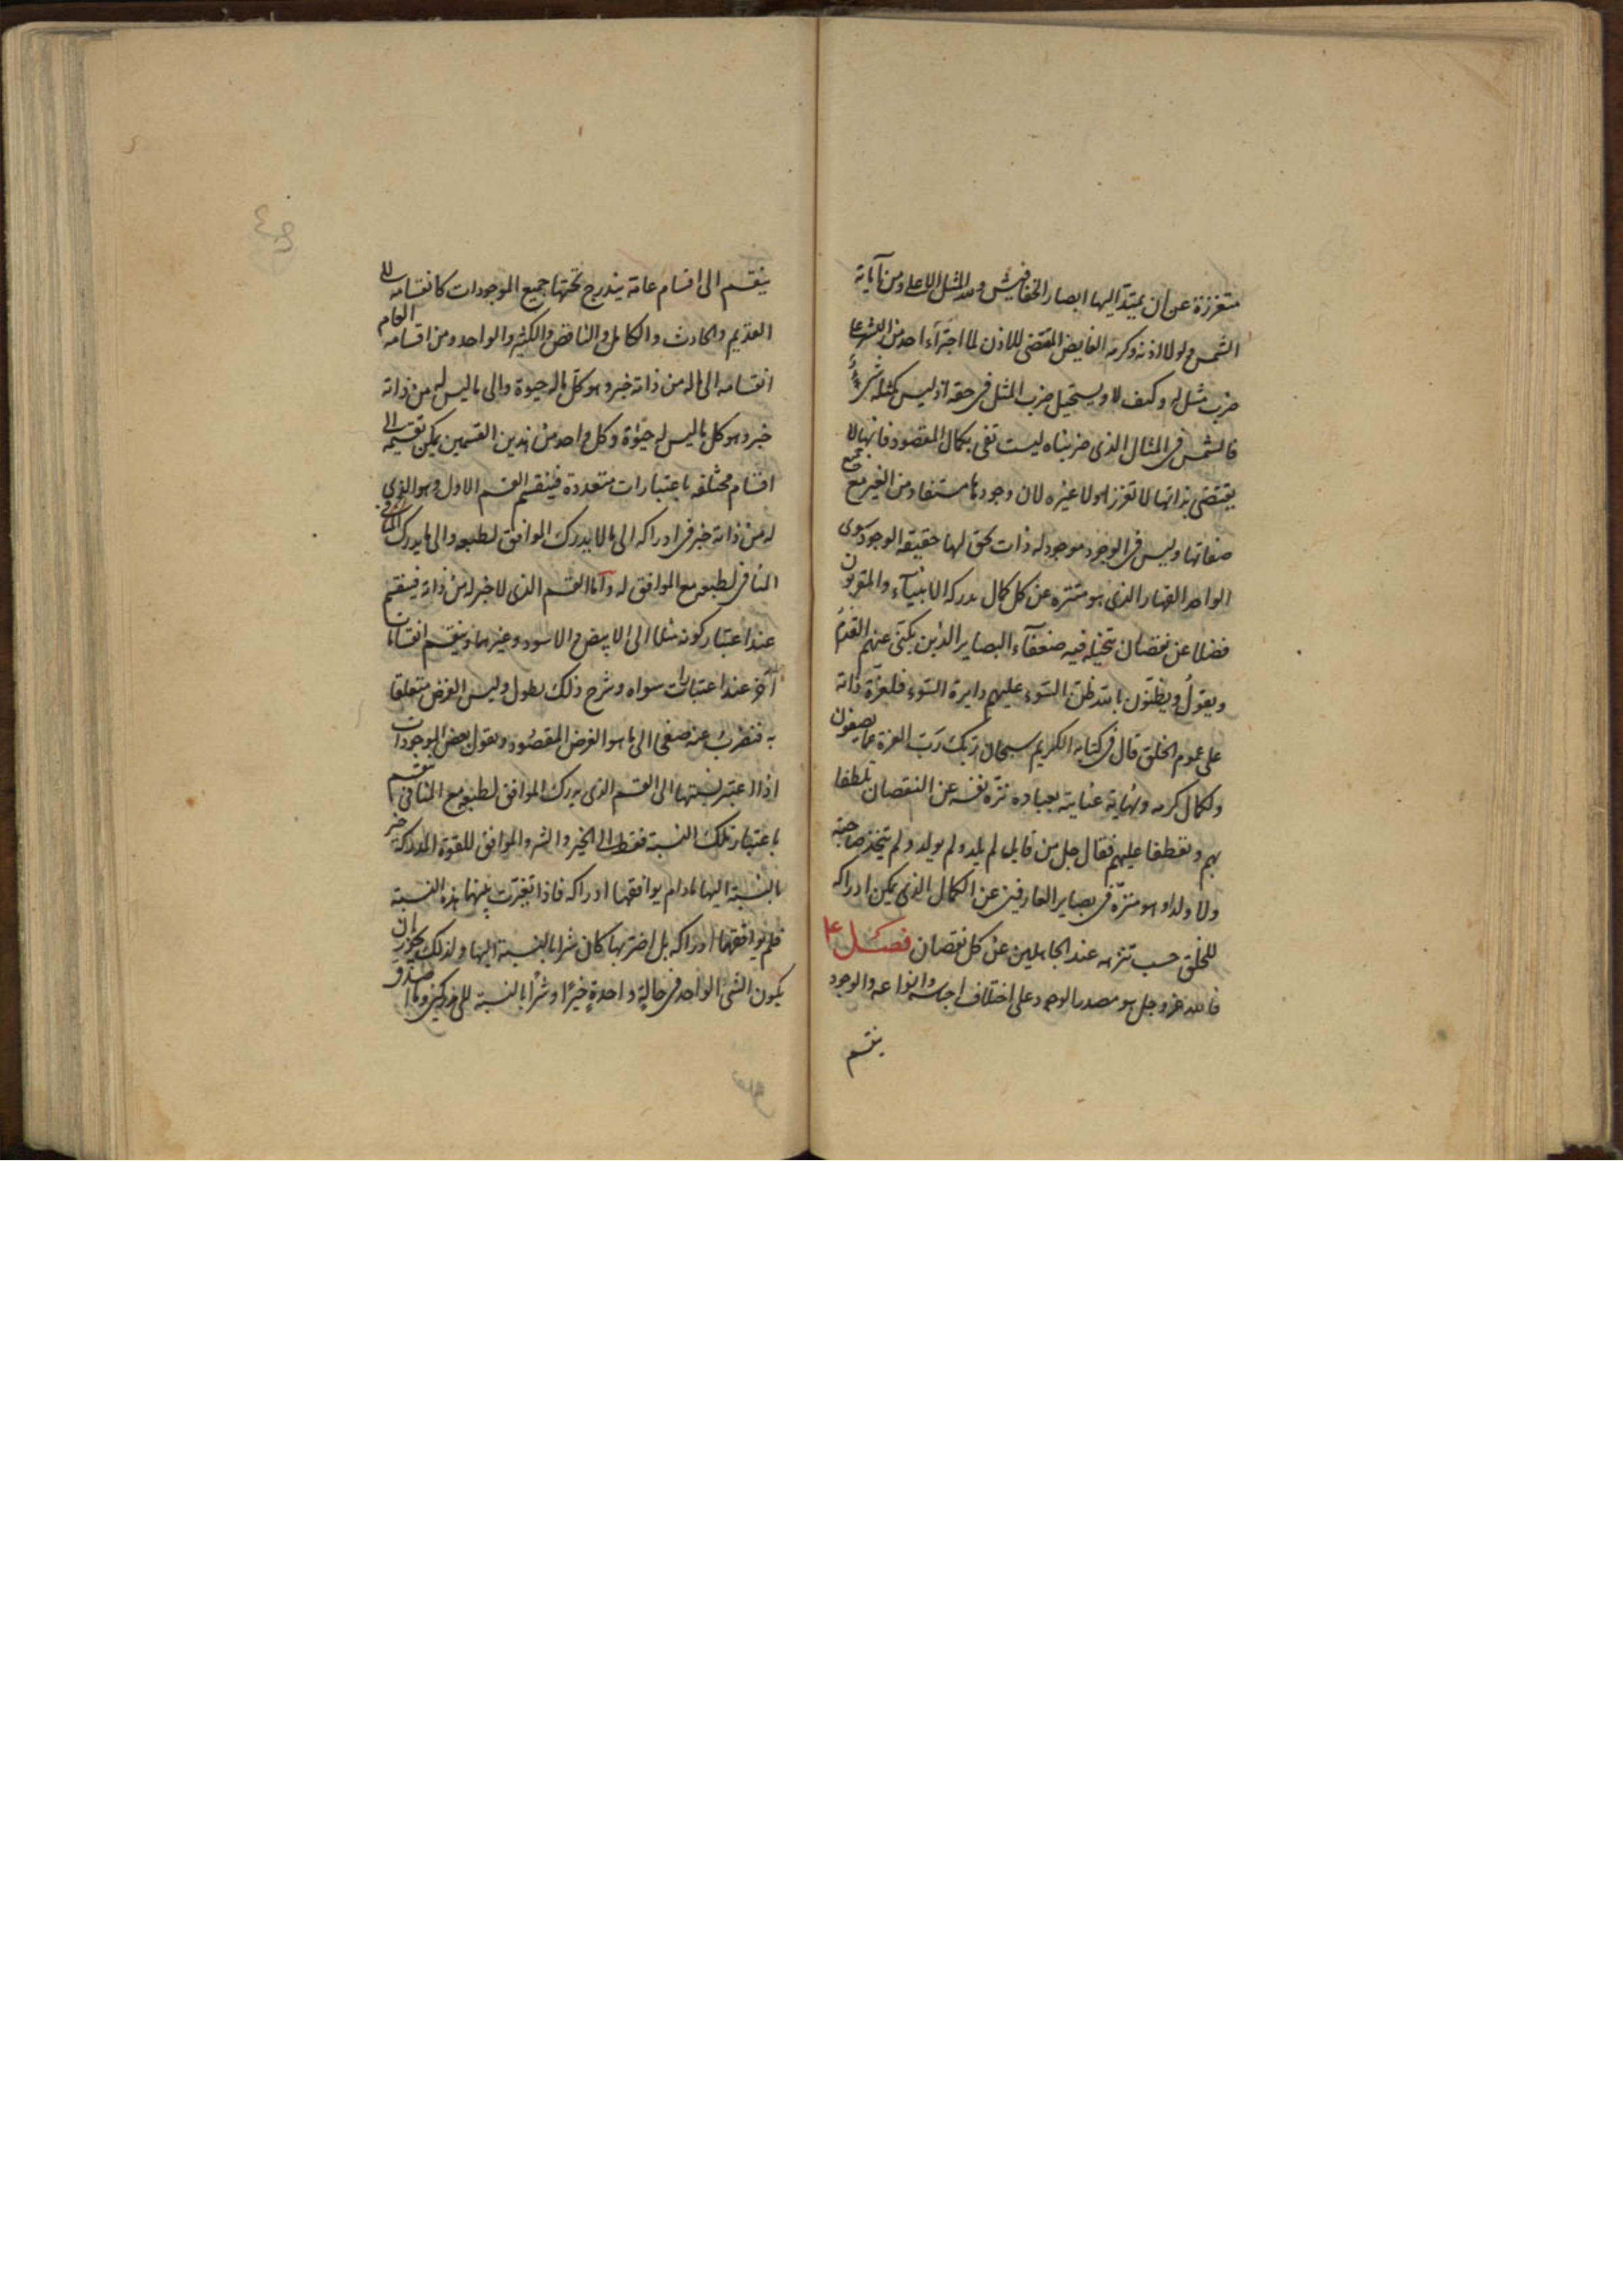 متعززة عن ان يمتد اليها ابصار الخفافيش ولله المثل الاعلى ومن آياته
الشمس ولولا اذنه وكرمه الفايض المقتضى للاذن لما اجتراء احد من البشر على
ضرب مثل له وكيف لا ويستحيل ضرب المثل فى حقه اذ ليس كمثله شىء
فالشمس فى المثال الذى ضربناه ليست تفى بكمال المقصود فانها لا
يقتضى بذاتها لا تعززا ولا غيره لان وجودها مستفاد من الغير مع جميع
صفاتها وليس فى الوجود موجود له ذات يحق لها حقيقة الوجود سوى
الواحد القهار الذى هو متنزه عن كل كمال يدركه الانبياء والمقربون
فضلا عن نقصان يتخيله فيه ضعفاء البصاير الذين يكنى عنهم القدم
ويقول ويظنون بالله ظن السوء عليهم دايرة السوء فلعزة ذاته
على عموم الخلق قال فى كتابه الكريم سبحان ربك رب العزة عما يصفون
ولكمال كرمه ونهاية عنايته بعباده نزه نفسه عن النقصان تلطفا
بهم وتعطفا عليهم فقال جل من قايل لم يلد ولم يولد ولم يتخذ صاحبة
ولا ولدا وهو منزه فى بصاير العارفين عن الكمال الذى يمكن ادراكه
للخلق حسب تنزهه عند الجاهلين عن كل نقصان فصل
فالله عز وجل هو مصدر الوجود على اختلاف اجناسه وانواعه والوجود
ينقسم
ينقسم الى اقسام عامة يندرج تحتها جميع الموجودات كانقسامه الى
القديم والحادث والكامل والناقص والكثير والواحد ومن اقسامه العام
انقسامه الى ما له من ذاته خبر وهو كل ما له حيوة والى ما ليس له من ذاته
خبر وهو كل ما ليس له حيوة وكل واحد من هذين القسمين يمكن تقسيمه الى
اقسام مختلفه باعتبارات متعددة فينقسم القسم الاول وهو الذى
له من ذاته خبر فى ادراكه الى ما لا يدرك الموافق لطبعه والى ما يدرك
المنافى لطبعه مع الموافق له واما القسم الذى لا خبر له من ذاته فينقسم
عند اعتبار كونه مثلا الى الابيض والاسود وغيرهما وينقسم انقسامات
أخر عند اعتبارات سواه وشرح ذلك يطول وليس الغرض متعلقا
به فنضرب عنه صفحا الى ما هو الغرض المقصود ونقول بعض الموجودات
اذا اعتبر نسبتها الى القسم الذى يدرك الموافق لطبعه مع المنافى ينقسم
باعتبار تلك النسبة فقط الى الخير والشر والموافق للقوة المدركة خير
بالنسبة اليها مادام يوافقها ادراكه فاذا تغيرت بينهما هذه النسبة
فلم يوافقها ادراكه بل اضر بها كان شرا بالنسبة اليها ولذلك يجوز ان
يكون الشىء الواحد فى حالة واحدة خيرا وشرا بالنسبة الى مدركين